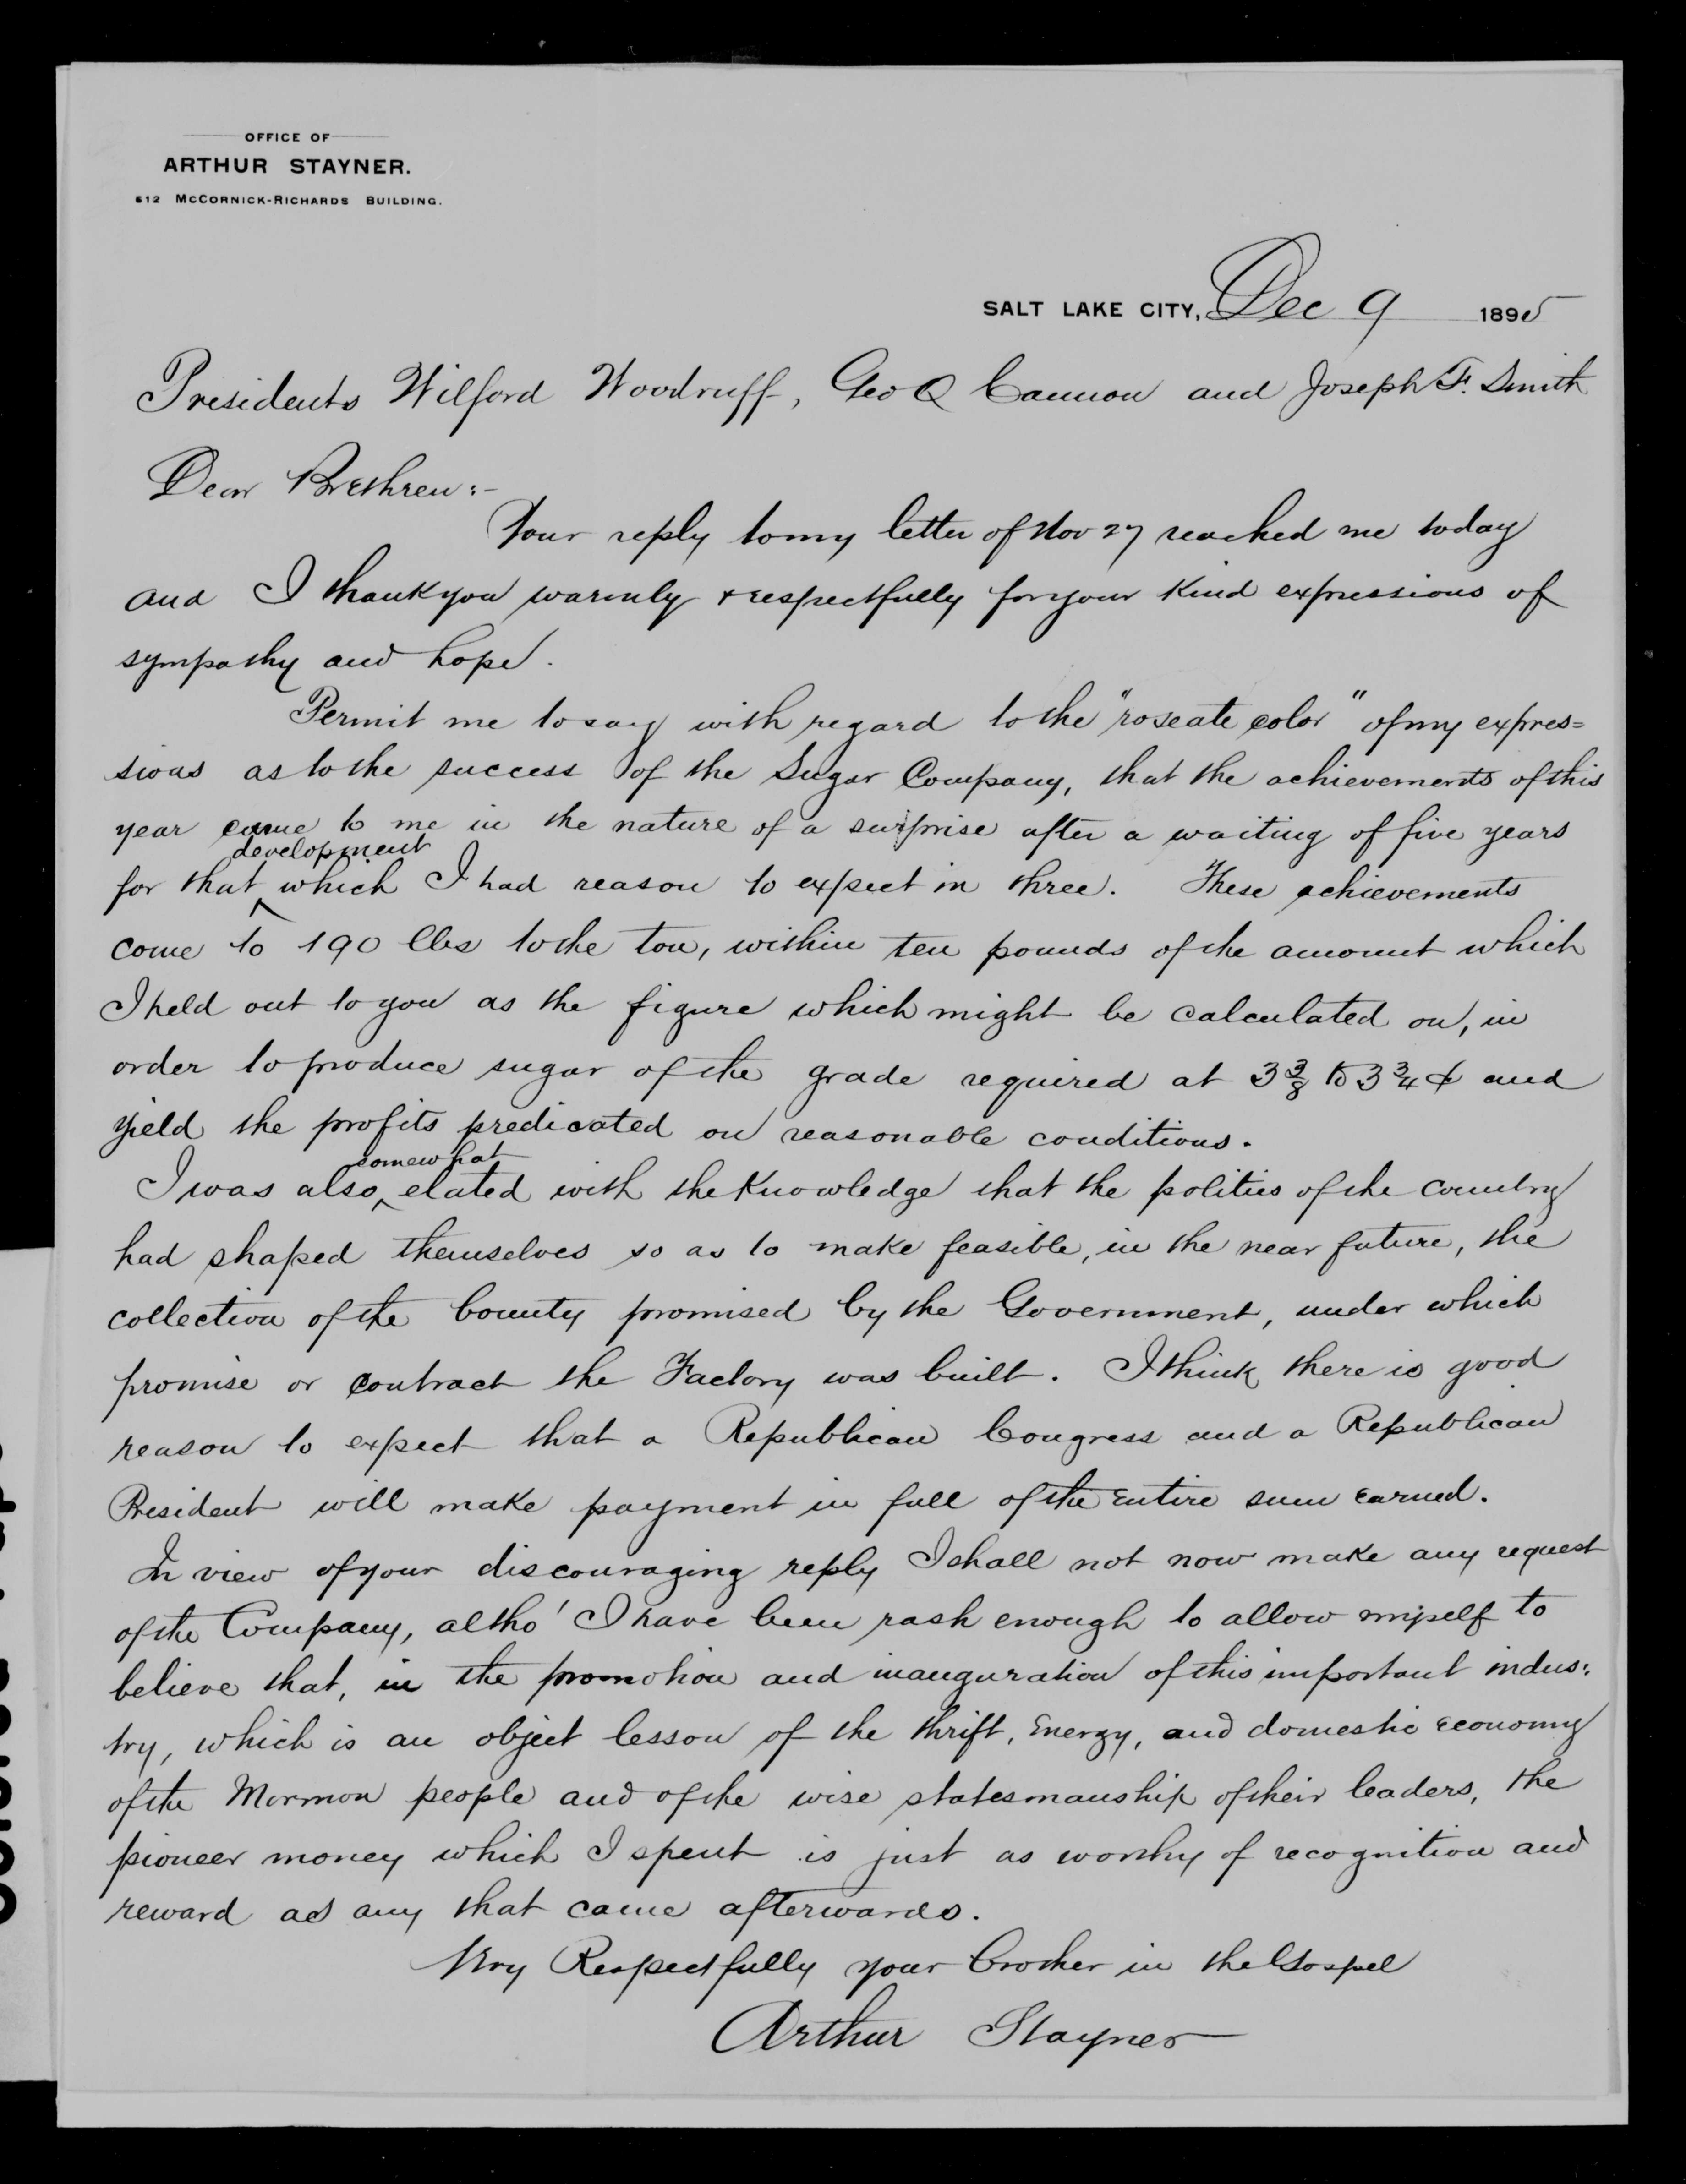 OFFICE OF
ARTHUR STAYNER.
612 MCCORNICK-RICHARDS BUILDING.
SALT LAKE CITY, Dec 9 1895
Presidents Wilford Woodruff, Geo Q Cannon and Joseph F. Smith
Dear Brethren:-
Your reply to my letter of Nov 27 reached me today
and I thank you warmly & respectfully for your kind expressions of
sympathy and hope.
Permit me to say with regard to the "roseate color" of my expres=
sions as to the success of the Sugar Company, that the achievements of this
year came to me in the nature of a surprise after a waiting of five years
development
for that ^ which I had reason to expect in three. These achievements
come to 190 lbs to the ton, within ten pounds of the amount which
I held out to you as the figure which might be calculated on, in
order to produce sugar of the grade required at 3 3/8 to 3 3/4 ¢ and
yield the profits predicated on reasonable conditions.
somewhat
I was also ^ elated with the Knowledge that the politics of the country
had shaped themselves so as to make feasible, in the near future, the
collection of the bounty promised by the Government, under which
promise or contract the Factory was built. I think there is good
reason to expect that a Republican Congress and a Republican
President will make payment in full of the entire sum earned.
In view of your discouraging reply I shall not now make any request
of the Company, altho' I have been rash enough to allow myself to
believe that, in the promotion and inauguration of this important indus:
try, which is an object lesson of the thrift, Energy, and domestic economy
of the Mormon people and of the wise statesmanship of their leaders, the
pioneer money which I spent is just as worthy of recognition and
reward as any that came afterwards.
Very Respectfully your brother in the Gospel
Arthur Stayner